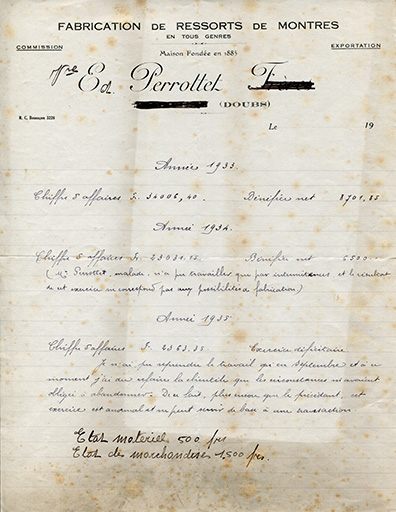 FABRICATION DE RESSORTS DE MONTRES
EN TOUS GENRES
COMMISSION
EXPORTATION
Maison Fondée en 1885
Ed. Perrottet
(DOUBS)
R. C. Besançon
Le 19
Année 1933.
Chiffre d'affaires Fr. 34006,40. Bénéfice net 8701.85
Année 1934.
Chiffre d'affaires Fr. 23031.15. Bénéfice net 5500
(Mr Perrottet, malade, n'a pu travailler que par intermittences et le résultat
de cet exercice ne correspond pas aux possibilités de fabrication)
Année 1935
Chiffre d'affaires F. 2363.35 Exercice déficitaire
Je n'ai pu reprendre le travail qu'en Septembre et à ce
moment j'ai dû refaire la clientèle que les circonstances m'avaient
obligé à abandonner. De ce fait, plus encore que le précédent, cet
exercice est anormal et ne peut servir de base à une transaction
Etat matériel 500 frs
Etat de marchandises 1,500 frs.